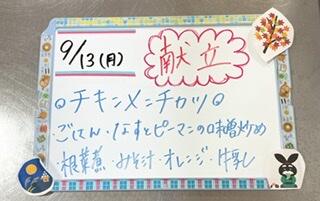 9/13(月)
献立
◎チキンメンチカツ◎
ごはん・なすとピーマンの味噌炒め
・根菜煮・みそ汁・オレンジ・牛乳